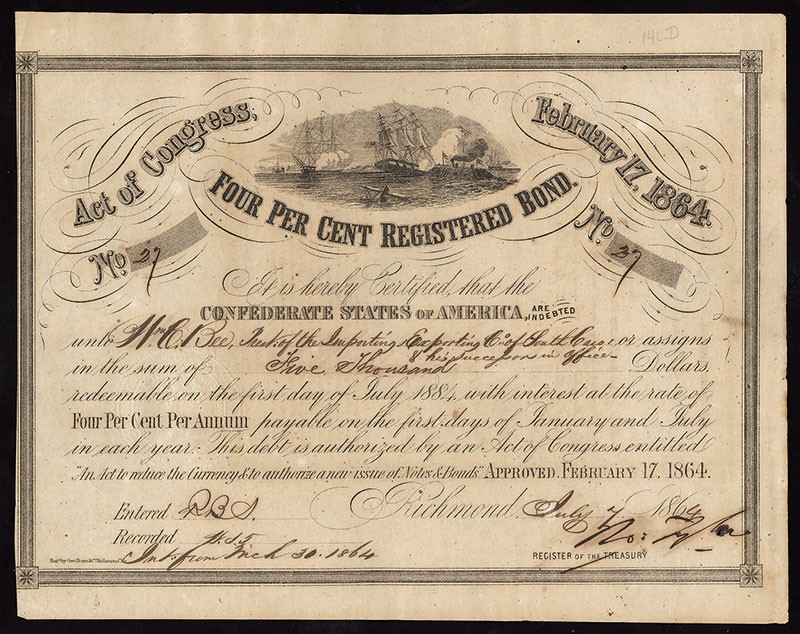 14LD
Act of Congress, February 17, 1864.
Four Per Cent Registered Bond.
No 27 No 27
It is hereby Certified, that the
CONFEDERATE STATES OF AMERICA, ARE INDEBTED
unto Wm C. Bee, of the Importing & Exporting Co. of South or assigns
& his successors in office
in the sum of Five Thousand Dollars,
redeemable on the first day of July 1884, with interest at the rate of
Four Per Cent Per Annum payable on the first days of January and July
in each year. This debt is authorized by an Act of Congress entitled
"An Act to reduce the Currency & to authorize a new issue of Notes & Bonds" APPROVED, FEBRUARY 17, 1864.
Entered R.B.S. Richmond, July 7 1864
Recorded
Int. from Mch 30. 1864
REGISTER OF THE TREASURY